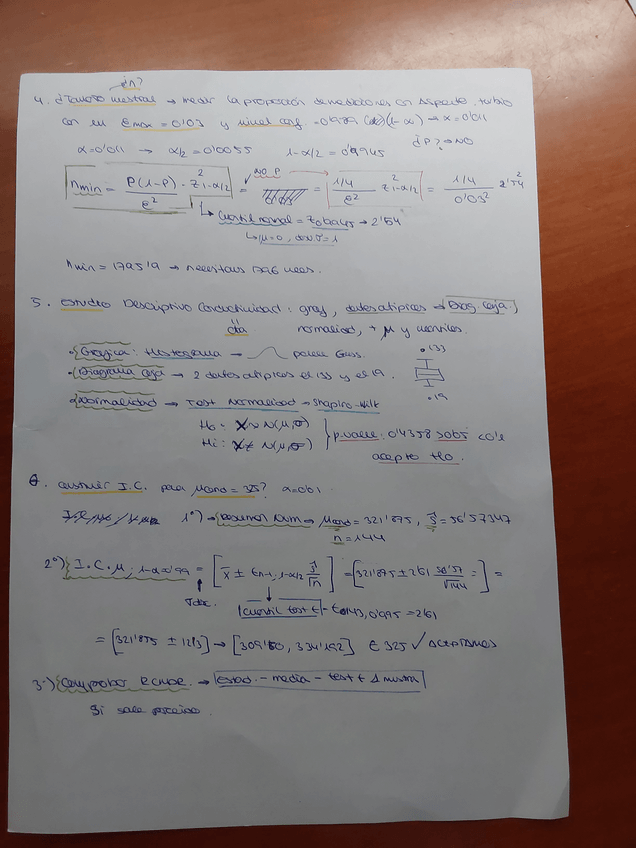 ¿n?
4. ¿Tamaño muestral → medir la proporción de mediciones con aspecto turbio
con un Emax = 0'03 y nivel conf = 0'989 (1-α) → α = 0'011
α = 0'011 → α/2 = 0'0055 1-α/2 = 0'9945 ¿P? → NO
nmin = P(1-P) · z²1-α/2 / e² = NO P = 1/4 / e² z²1-α/2 = 1/4 / 0'03² 2'54²
↳ Cuantil normal = z0'9945 → 2'54
↳ μ=0, σ=1
nmin = 1795'9 → necesitamos 1796 uds.
5. estudio Descriptivo Conductividad: graf, datos atípicos → Diag. Caja.
cta normalidad, + μ y
• Gráfica: Histograma → parece Gauss.
• Diagrama caja → 2 datos atípicos el 133 y el 19.
• 133
• 19
• Normalidad → Test Normalidad → Shapiro-Wilk
Ho: X ~ N(μ,σ)
Hi: X ≁ N(μ,σ)
p.value: 0'4358
acepto Ho.
6. construir I.C. para μcond = 325? α=0'01
1º) → Resumen Num → μcond = 321'875, ŝ = 56'57347
n = 144
2º) I.C. μ; 1-α=0'99 = [x̄ ± tn-1, 1-α/2 ŝ/√n] = [321'875 ± 2'61 56'57/√144] =
cuantil test t - t143, 0'995 = 2'61
= [321'875 ± 12'3] → [309'60, 334'192] ∈ 325 ✓ aceptamos
3º) Comprobar Rcmdr. → Estad. - media - test t 1 muestra
Si sale parecido.